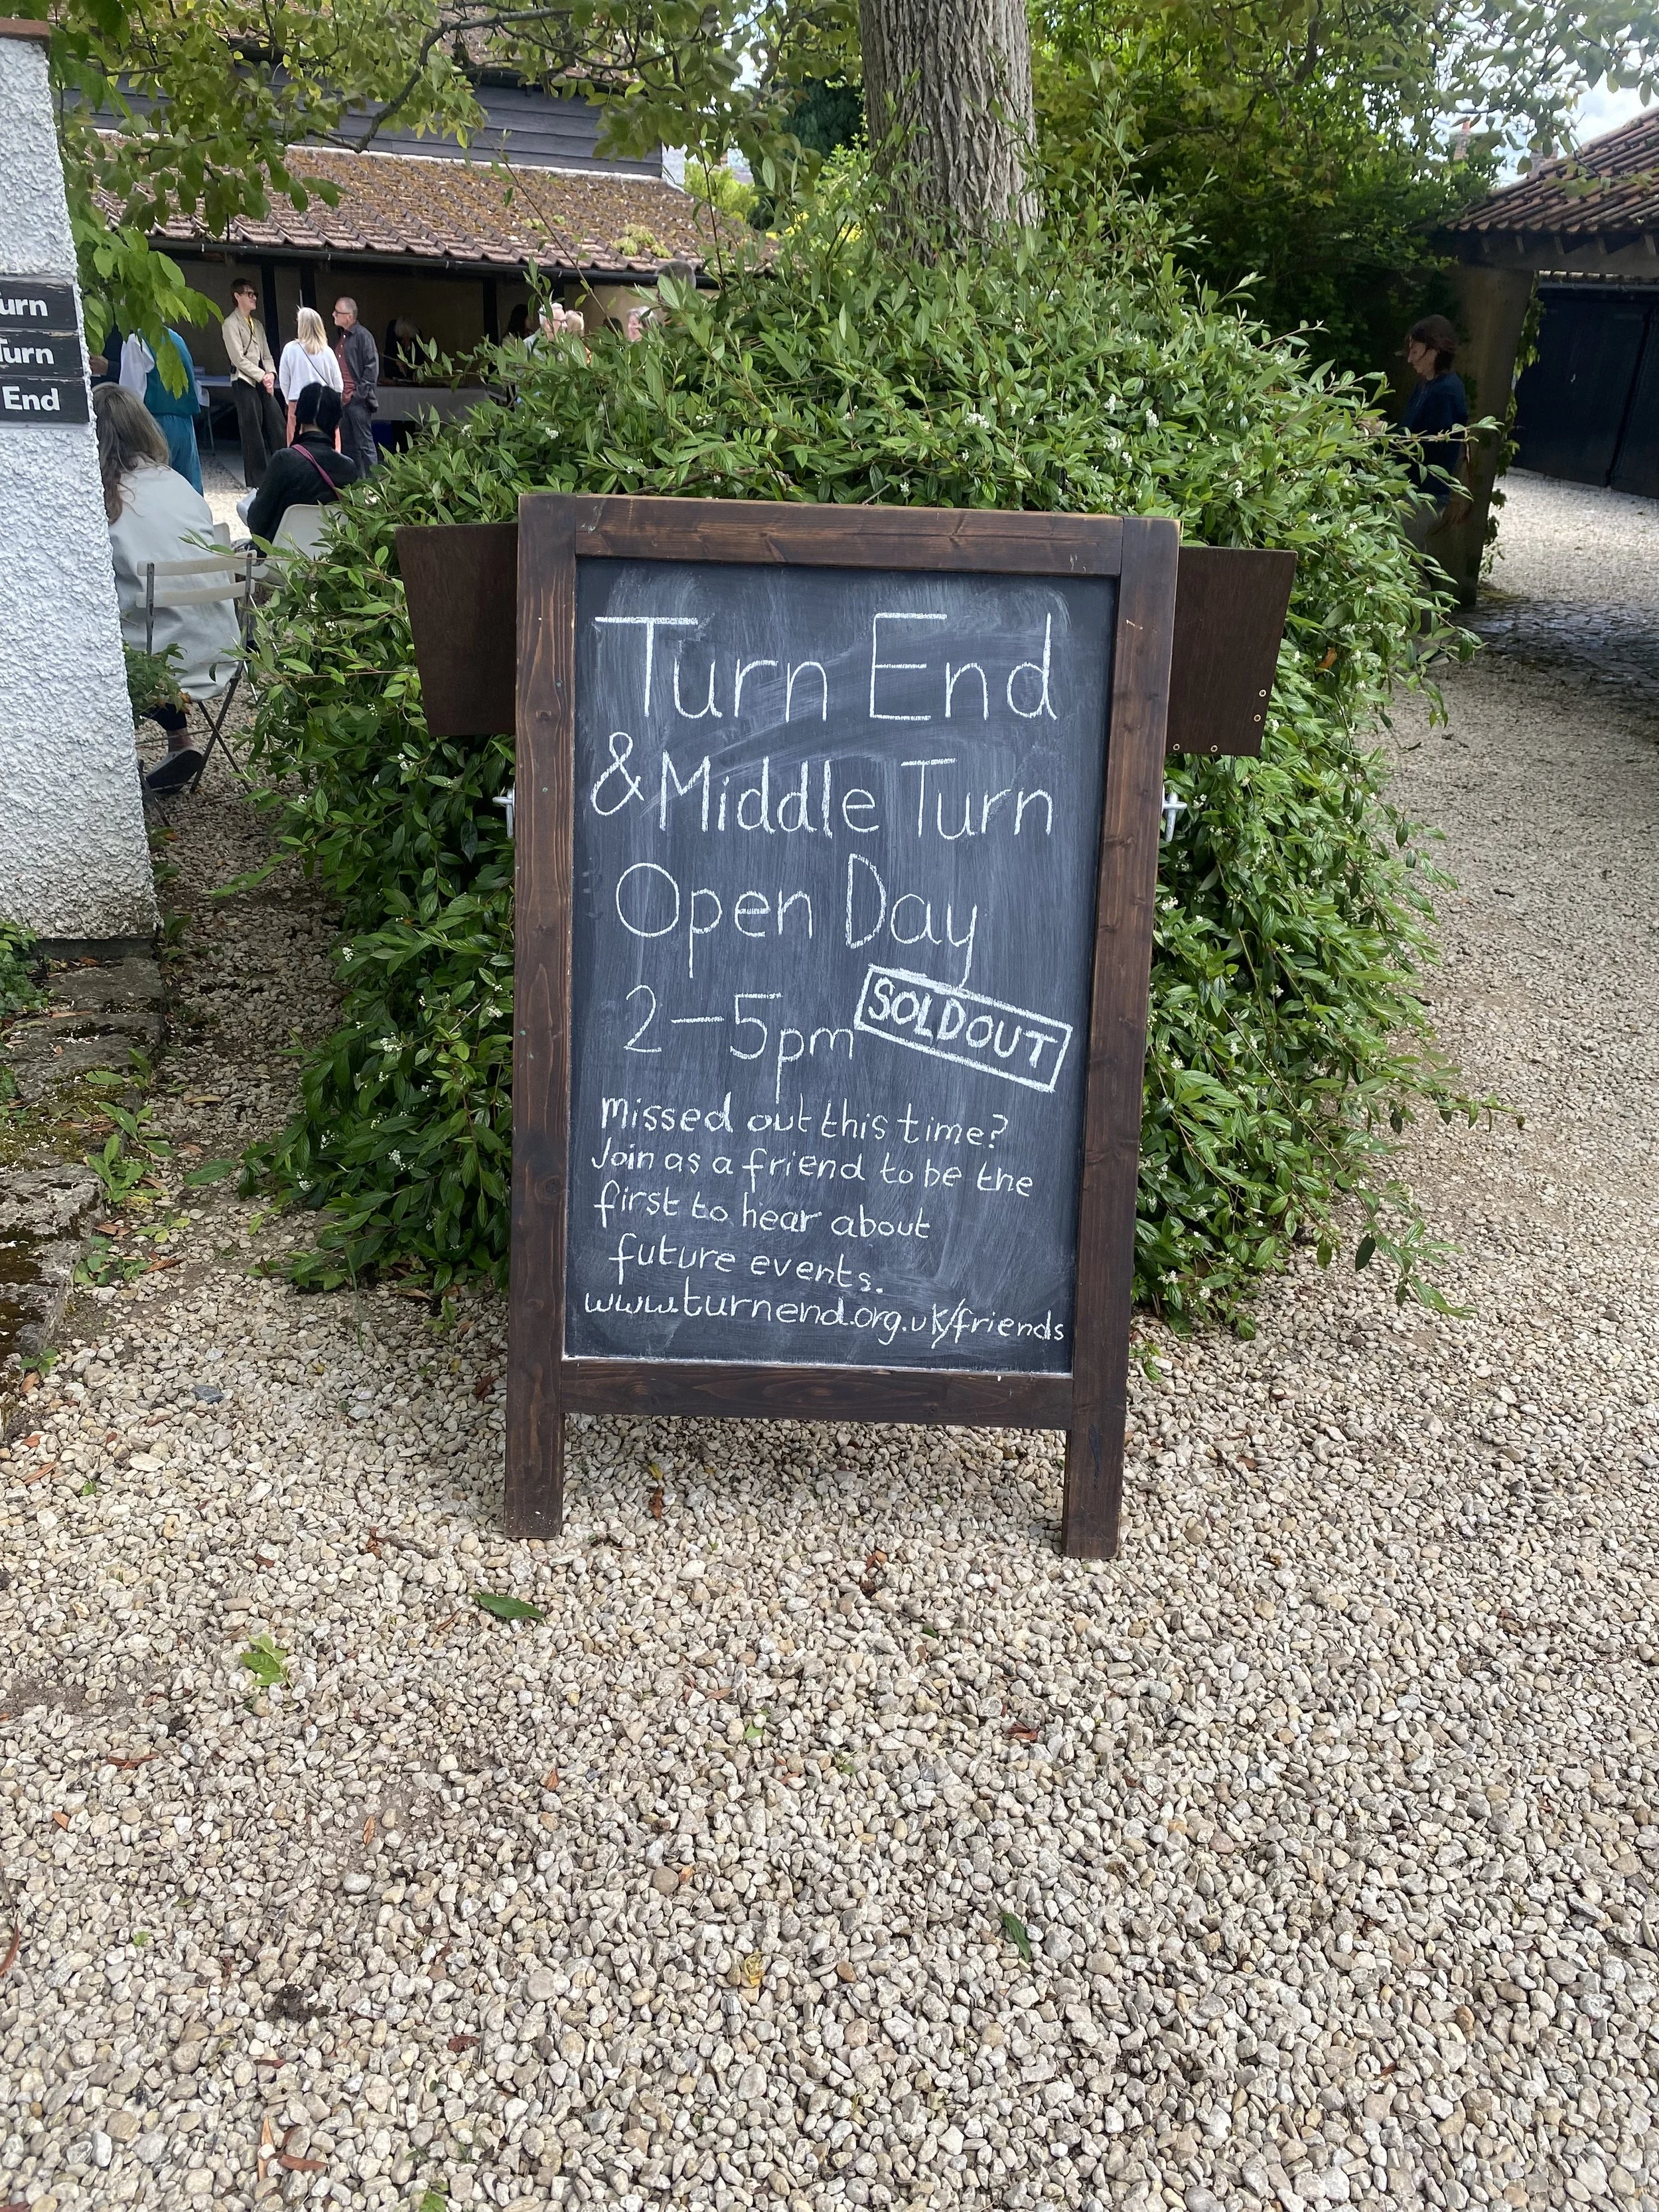 urn
Turn
End
Turn End
& Middle Turn
Open Day
2-5pm SOLD OUT
Missed out this time?
Join as a friend to be the
first to hear about
future events.
www.turnend.org.uk/friends